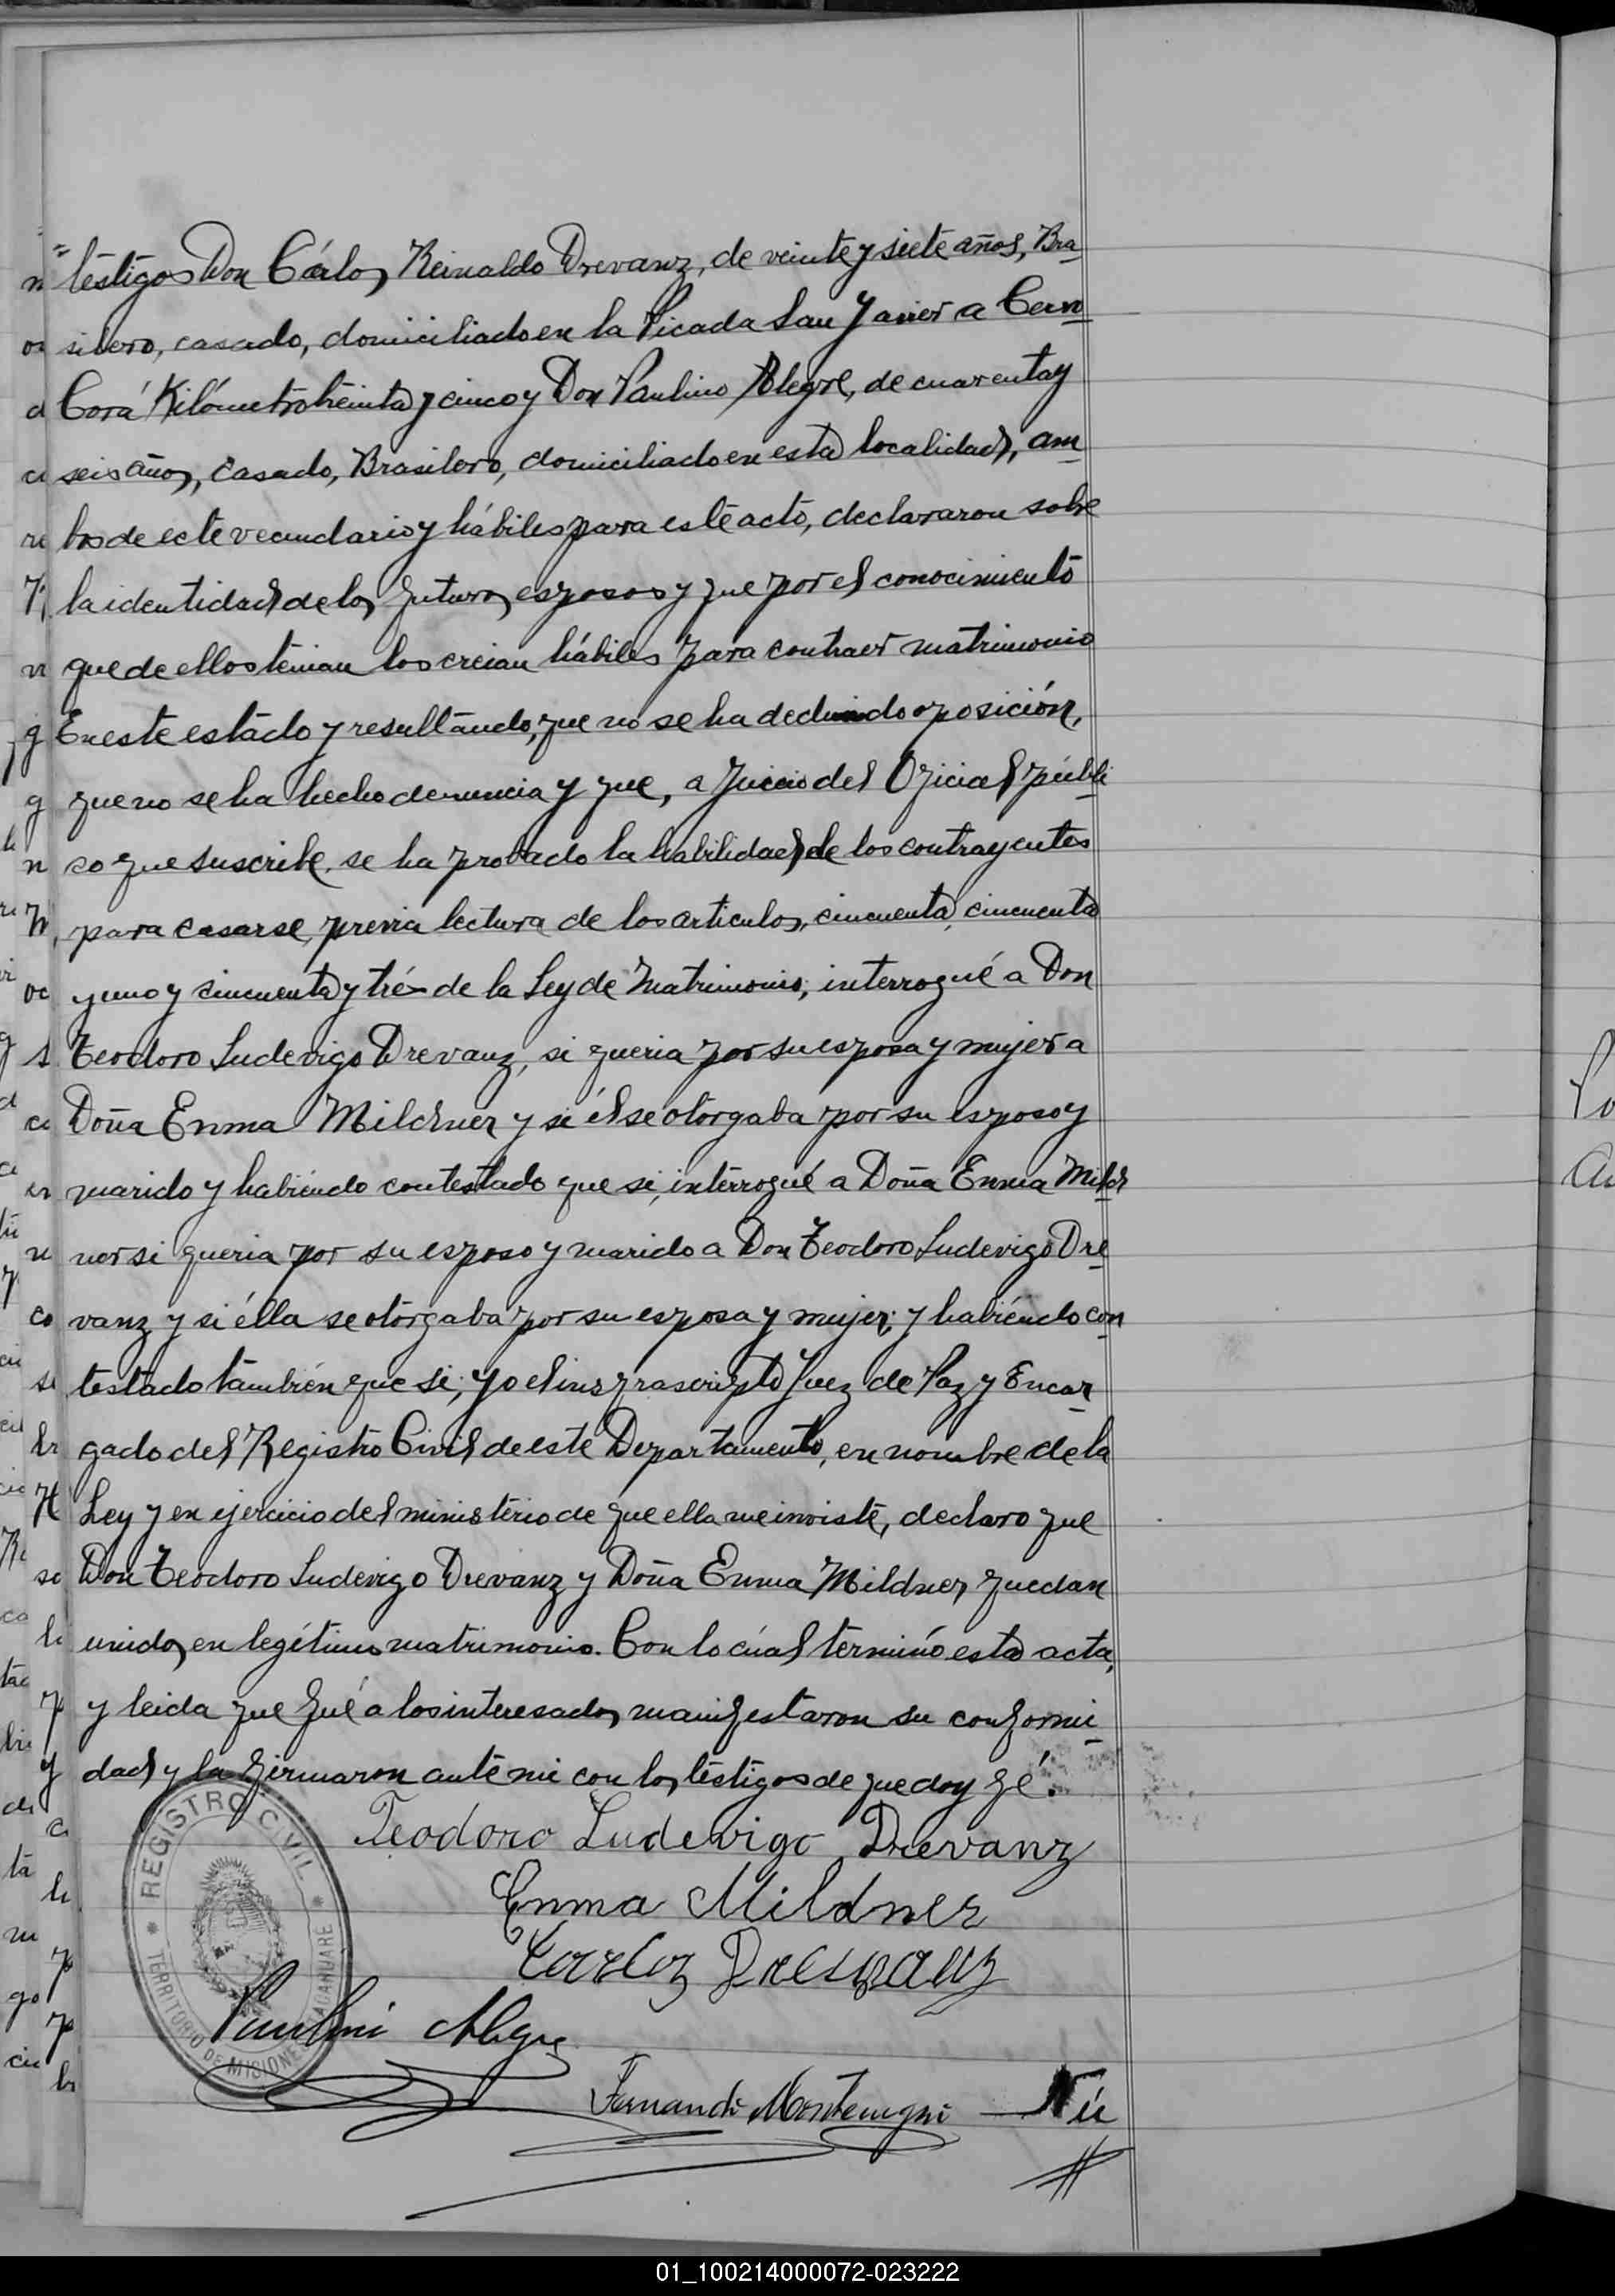 testigos Don Cárlos Reinaldo Drevanz, de veinte y siete años, Bra
silero, casado, domiciliado en la Picada San Javier a Cerro
Corá Kilómetro treinta y cinco y Don Paulino Alegre, de cuarenta y
seis años, casado, Brasilero, domiciliado en esta localidad, am
bos de este vecindario y hábiles para este acto, declararon sobre
la identidad de los futuros esposos y que por el conocimiento
que de ellos tenian los creian hábiles para contraer matrimonio
En este estado y resultando, que no se ha deducido oposición,
que no se ha hecho denuncia y que, a juicio del Oficial públi
co que suscribe, se ha probado la habilidad de los contrayentes
para casarse, previa lectura de los articulos, cincuenta, cincuenta
y uno y cincuenta y tres de la Ley de Matrimonio, interrogué a Don
Teodoro Ludevigo Drevanz, si queria por su esposa y mujer a
Doña Enma Mildner y si él se otorgaba por su esposo y
marido y habiendo contestado que si, interrogué a Doña Enma Mild
ner si queria por su esposo y marido a Don Teodoro Ludevigo Dre
vanz y si élla se otorgaba por su esposa y mujer; y habiendo con
testado también que si, yo el infrascripto Juez de Paz y Encar
gado del Registro Civil de este Departamento, en nombre de la
Ley y en ejercicio del ministerio de que ella me inviste, declaro que
Don Teodoro Ludevigo Drevanz y Doña Enma Mildner quedan
unidos en legítimo matrimonio. Con lo cúal terminó esta acta,
y leida que fué a los interesados manifestaron su conformi
dad y la firmaron ante mi con los testigos de que doy fé.
Teodoro Ludevigo Drevanz
Enma Mildner
Carlos Drevanz
Paulino Alegre
REGISTRO CIVIL
TERRITORIO DE MISIONES
Fernando Montenegro
01_100214000072-023222